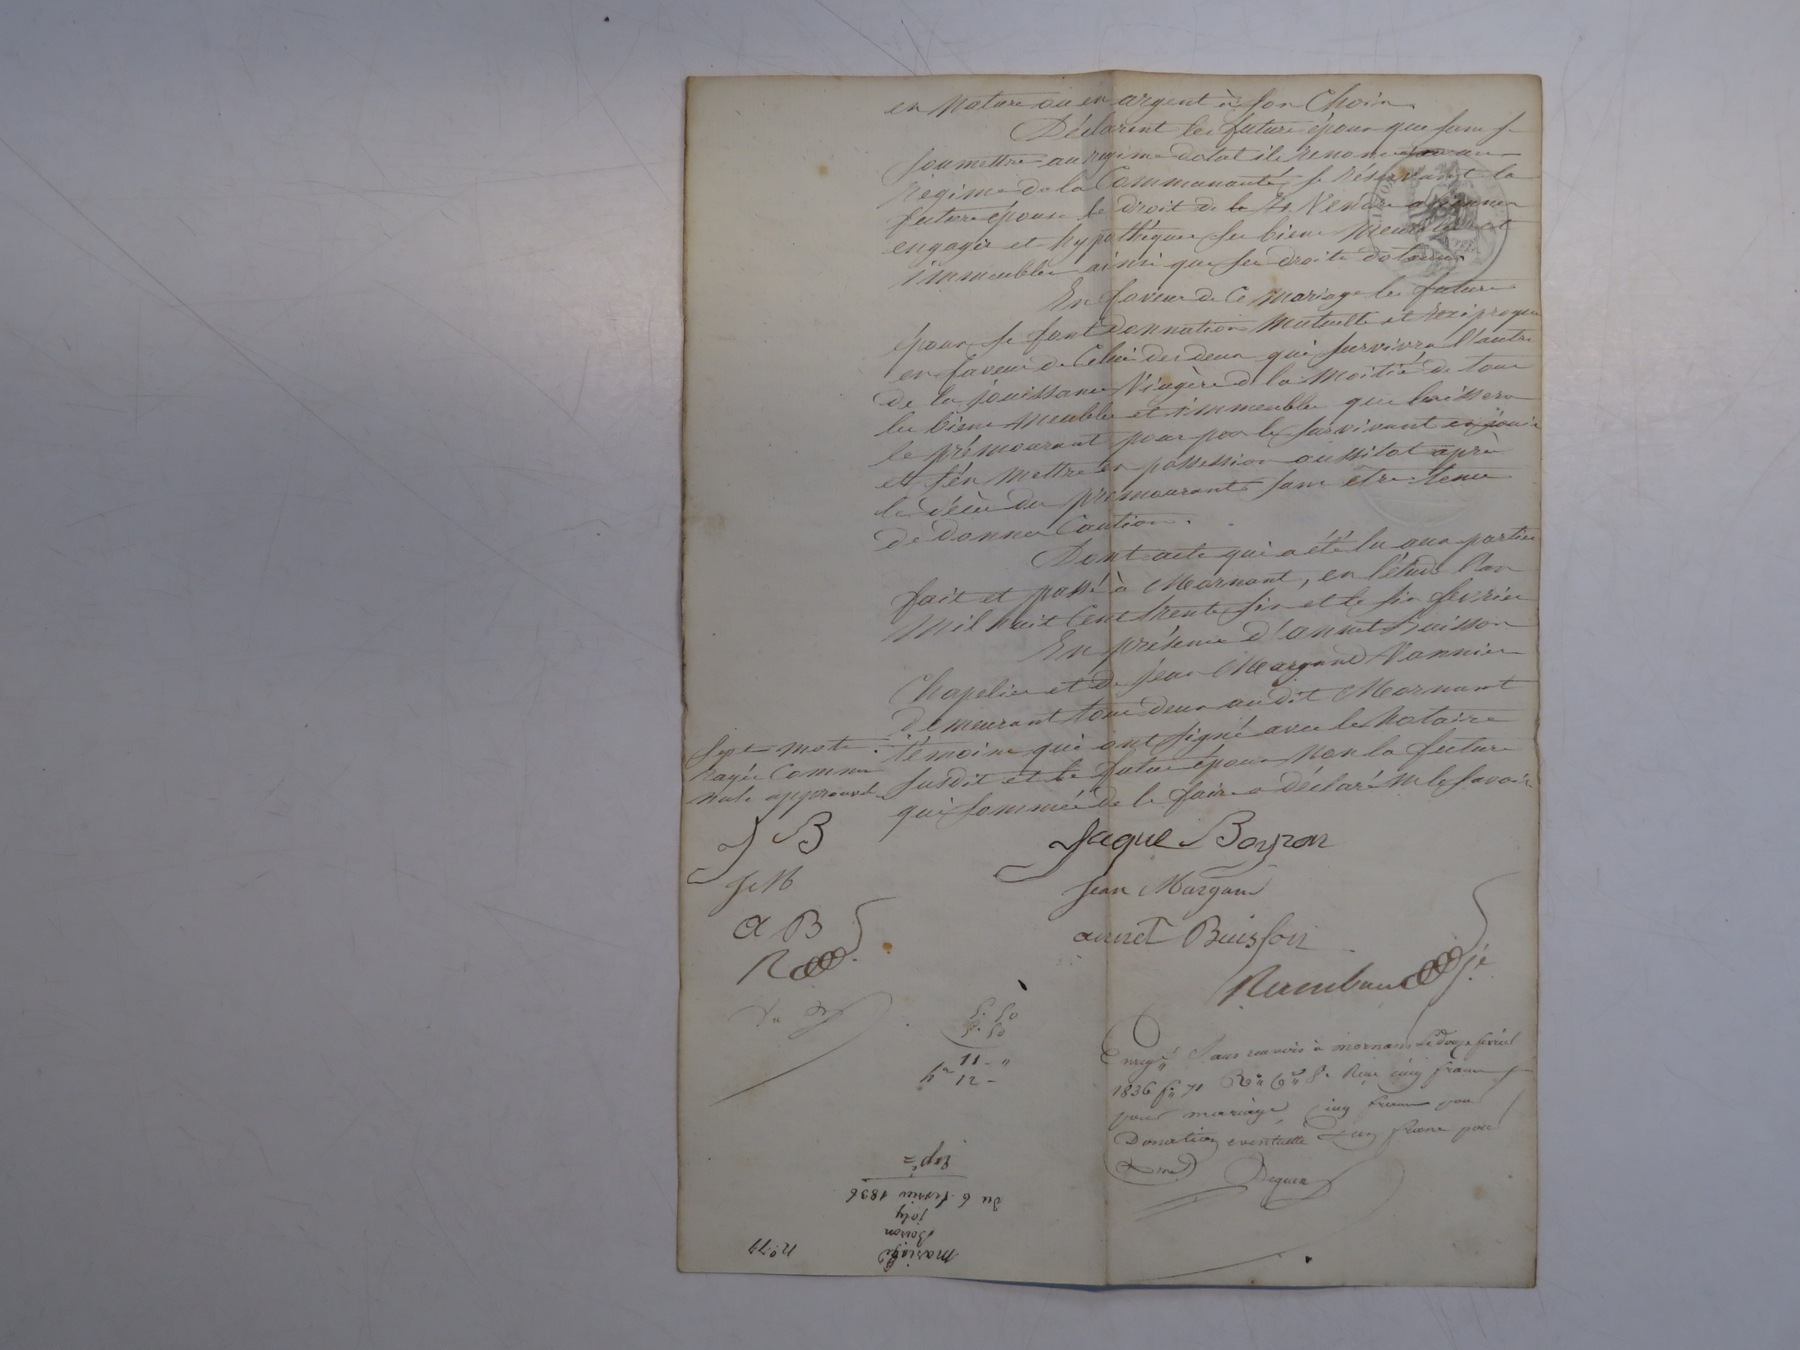 en Nature ou en argent à son Choix
Déclarent les futurs époux que sans se
soumettre au régime dotal ils renoncent au
régime de la Communauté, se réservant la
future épouse le droit de Vendre aliéner
engager et hypothéquer ses biens Meubles et
immeubles ainsi que ses droits dotaux.
En faveur de Ce Mariage les futurs
époux se font donnation Mutuelle et réciproque
en faveur de Celui des deux qui survivra l'autre
de la jouissance Viagère de la Moitié de tous
les biens Meubles et immeubles que laissera
le prémourant pour par le survivant en jouir
et s'en Mettre en possession aussitot après
le décès du prémourant sans être tenu
de donner Caution.
Dont acte qui a été lu aux parties
fait et passé à Mornant, en l'étude l'an
Mil huit Cent trente six et le six fevrier
En présence d'annet Buisson
Chapelier et de jean Margand Vannier
demeurant tous deux audit Mornant
témoins qui ont signé avec le Notaire
susdit et le futur époux Non la future
qui sommée de le faire a déclaré Ne le savoir
Sept mots
rayés Comme
nuls approuvés
J B
J M
a B
R
Jaque Boyron
Jean Margand
annet Buisson
Rambaud
5. 50
5. 50
11 - "
12 -
Enregé. sans renvois à mornant le douze février
1836 f° 71 Ro Ces 5. Reçu cinq francs
pour mariage cinq francs pour
Donation eventuelle & un franc pour
Dixme
mariage
Boiron
joly
du 6 fevrier 1836
Expé =
n° 77